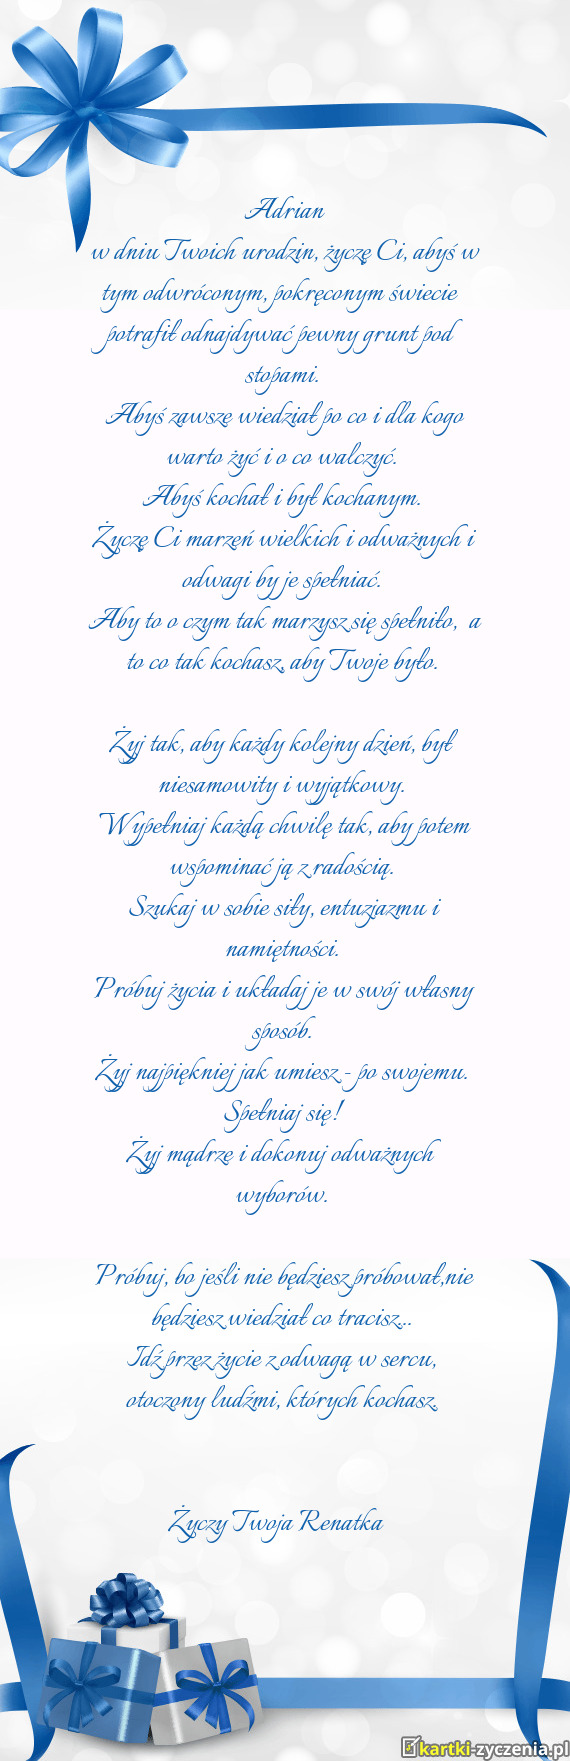 Adrian
w dniu Twoich urodzin, życzę Ci, abyś w
tym odwróconym, pokręconym świecie
potrafił odnajdywać pewny grunt pod
stopami.
Abyś zawsze wiedział po co i dla kogo
warto żyć i o co walczyć.
Abyś kochał i był kochanym.
Życzę Ci marzeń wielkich i odważnych i
odwagi by je spełniać.
Aby to o czym tak marzysz się spełniło, a
to co tak kochasz, aby Twoje było.
Żyj tak, aby każdy kolejny dzień, był
niesamowity i wyjątkowy.
Wypełniaj każdą chwilę tak, aby potem
wspominać ją z radością.
Szukaj w sobie siły, entuzjazmu i
namiętności.
Próbuj życia i układaj je w swój własny
sposób.
Żyj najpiękniej jak umiesz - po swojemu.
Spełniaj się!
Żyj mądrze i dokonuj odważnych
wyborów.
Próbuj, bo jeśli nie będziesz próbował,nie
będziesz wiedział co tracisz...
Idź przez życie z odwagą w sercu,
otoczony ludźmi, których kochasz.
Życzy Twoja Renatka
kartki-zyczenia.pl